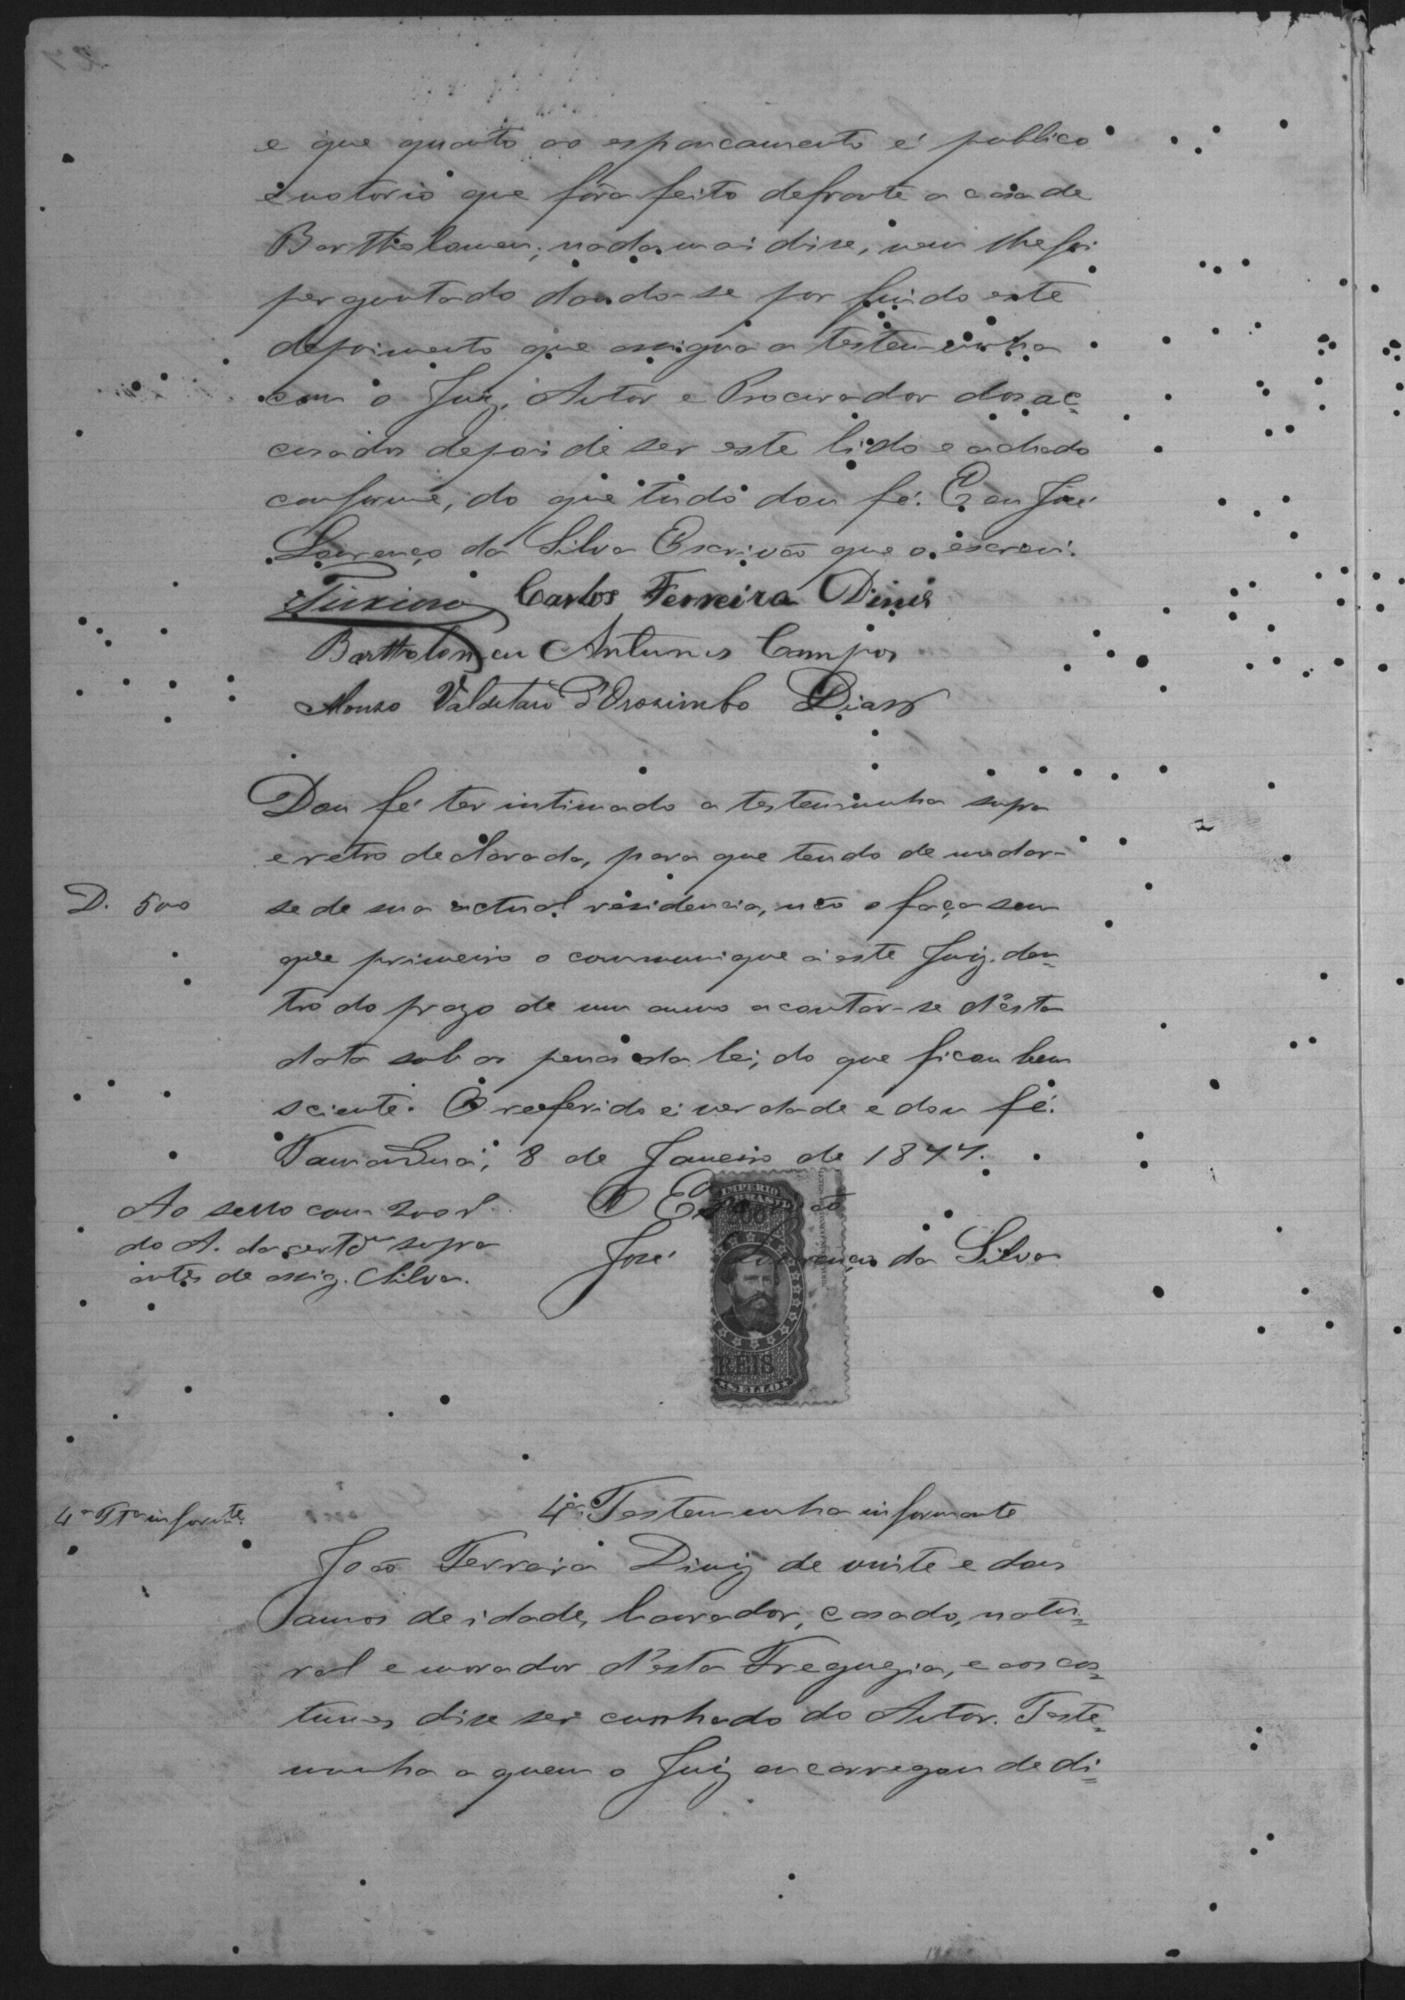 e que quanto ao espancamento é publico
e notorio que fôra feito defronte a casa de
Bartholomeu; nada mai disse, nem lhe foi
perguntado dando-se por findo este
depoimento que assigna a testemunha
com o Juiz, Autor e Procurador dos ac=
cusados depois de ser este lido e achado
conforme, do que tudo dou fé. E eu José
Lourenço da Silva Escrivão que o escrevi.
Carlos Ferreira Diniz
Bartholomeu Antunes Campos
Afonso Valdetaro d'Orosimbo Dias
Dou fé ter intimado a testemunha supra
e retro declarada, para que tendo de mudar-
D. 500
se de sua actual residencia, não o faça sem
que primeiro o communique á este Juiz den=
tro do prazo de um anno a contar-se d'esta
data sob as penas da lei, do que ficou bem
sciente. O referido é verdade e dou fé.
8 de Janeiro de 1877.
O Escrivão
José Lourenço da Silva
Ao sello com 200 r.
do A. da certdm supra
antes de assig. Silva.
IMPERIO
BRASIL
200
REIS
SELLO
4ª Tª informte
4ª Testemunha informante
João Ferreira Diniz de vinte e dous
annos de idade, lavrador, casado, natu=
ral e morador d'esta Freguezia, e aos cos=
tumes disse ser cunhado do Autor. Teste=
munha a quem o Juiz encarregou de di=